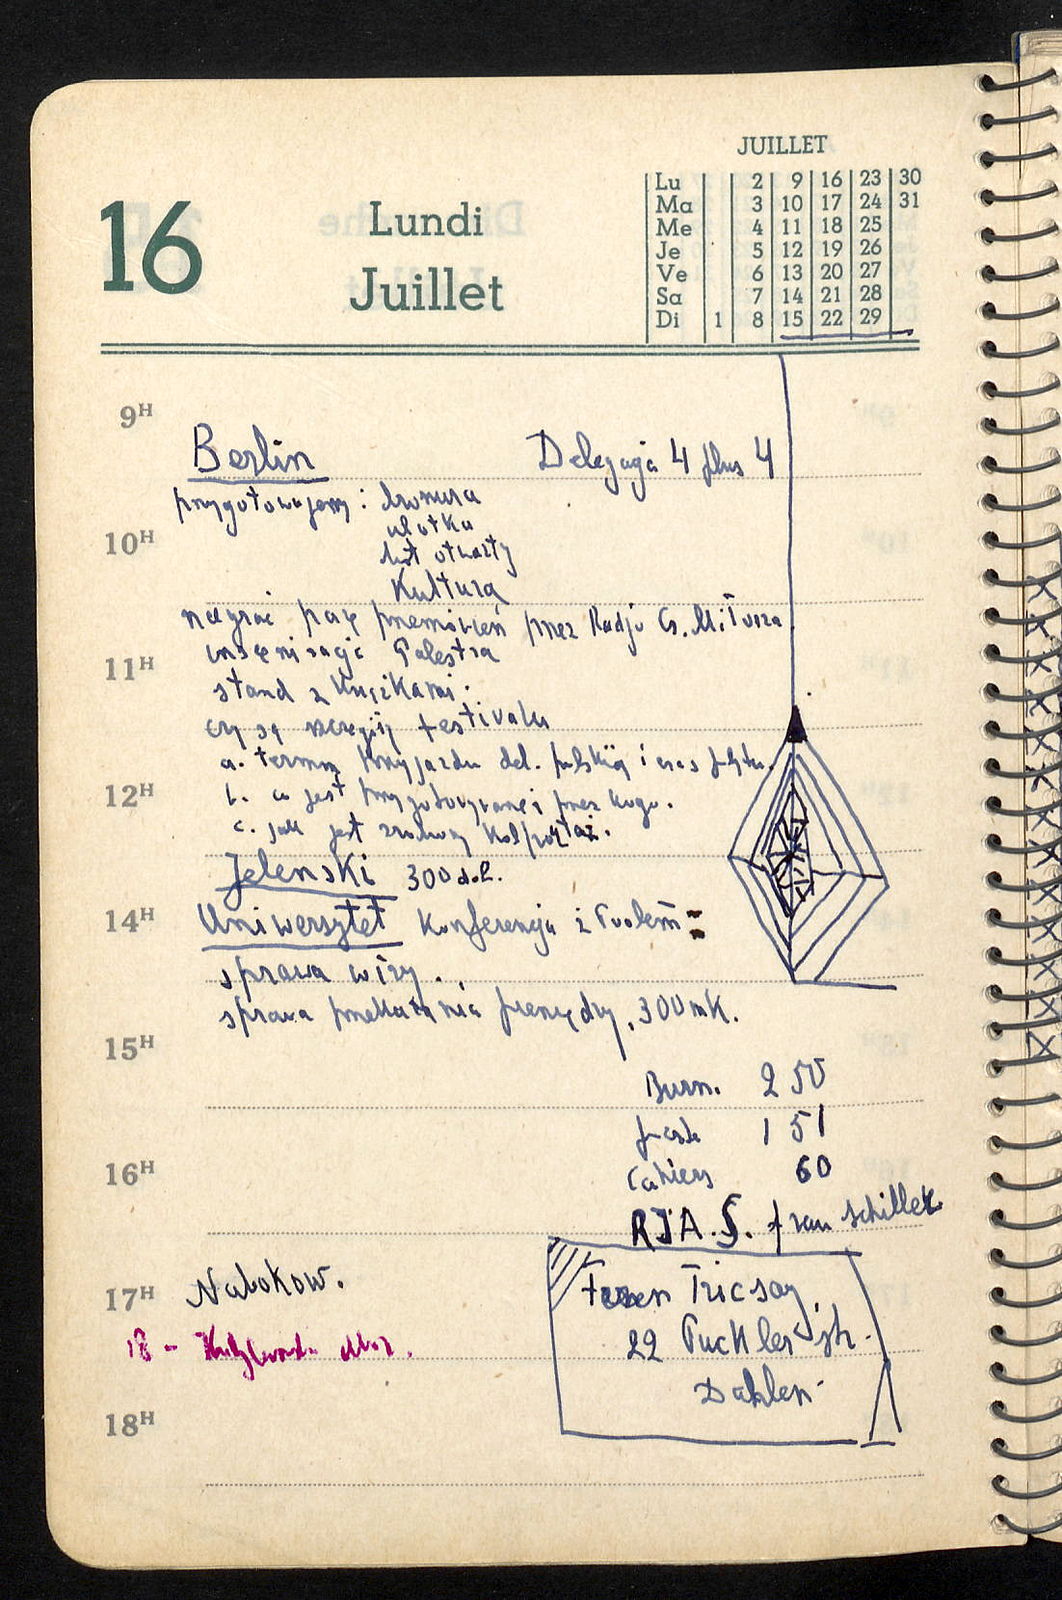 JUILLET
16
Lundi
Juillet
Lu 2 9 16 23 30
Ma 3 10 17 24 31
Me 4 11 18 25
Je 5 12 19 26
Ve 6 13 20 27
Sa 7 14 21 28
Di 1 8 15 22 29
9H
Berlin Delegacja 4 plus 4
przygotowujemy : broszura
ulotka
10H
list otwarty
Kultura
nagrać parę przemówień przez Radjo
11H
inscenizacja Palestra
stand z książkami.
czy są festivalu
a. termin przyjazdu del. polskiej i
12H
b. co jest przygotowywane i przez kogo.
c. jak jest kolportaż.
Jelenski 300 dol.
14H
Uniwersytet Konferencja z
sprawa wizy.
sprawa przekazania pieniędzy, 300 mk.
15H
Burn. 2 50
1 51
16H
Cahiers 60
RJA.S. frau Schillek
17H
Nabokow.
Tricsay,
18 -
22 Puckler str.
Dahlen
18H